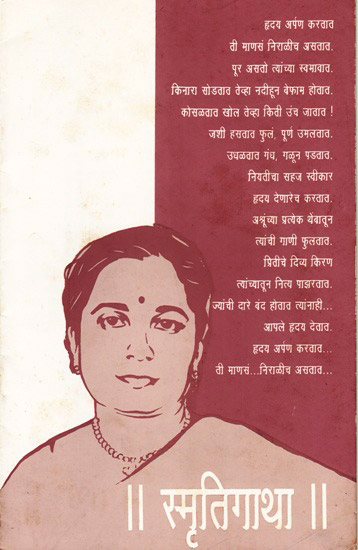 हृदय अर्पण करतात
ती माणसं निराळीच असतात.
पूर असतो त्यांच्या स्वभावात.
किनारा सोडतात तेव्हा नदीहून बेफाम होतात.
कोसळतात खोल तेव्हा किती उंच जातात !
जशी हसतात फुलं, पूर्ण उमलतात.
उधळतात गंध, गळून पडतात.
नियतीचा सहज स्वीकार
हृदय देणारेच करतात.
अश्रूंच्या प्रत्येक थेंबातून
त्यांची गाणी फुलतात.
प्रितीचे दिव्य किरण
त्यांच्यातून नित्य पाझरतात.
ज्यांची दारे बंद होतात त्यांनाही...
आपले हृदय देतात.
हृदय अर्पण करतात...
ती माणसं...निराळीच असतात...
|| स्मृतिगाथा ||